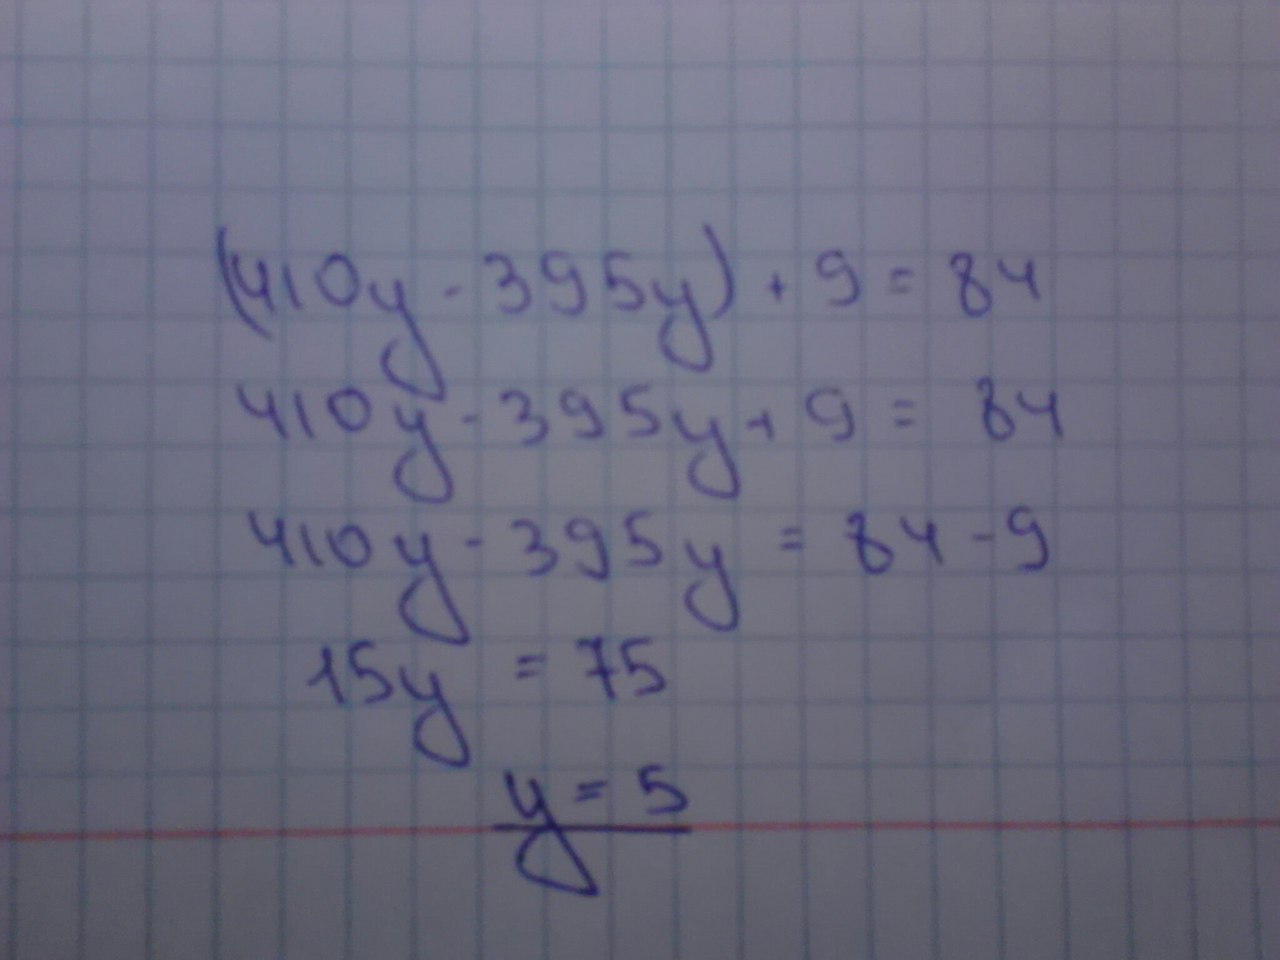 (410y - 395y) + 9 = 84
410y - 395y + 9 = 84
410y - 395y = 84 - 9
15y = 75
y = 5